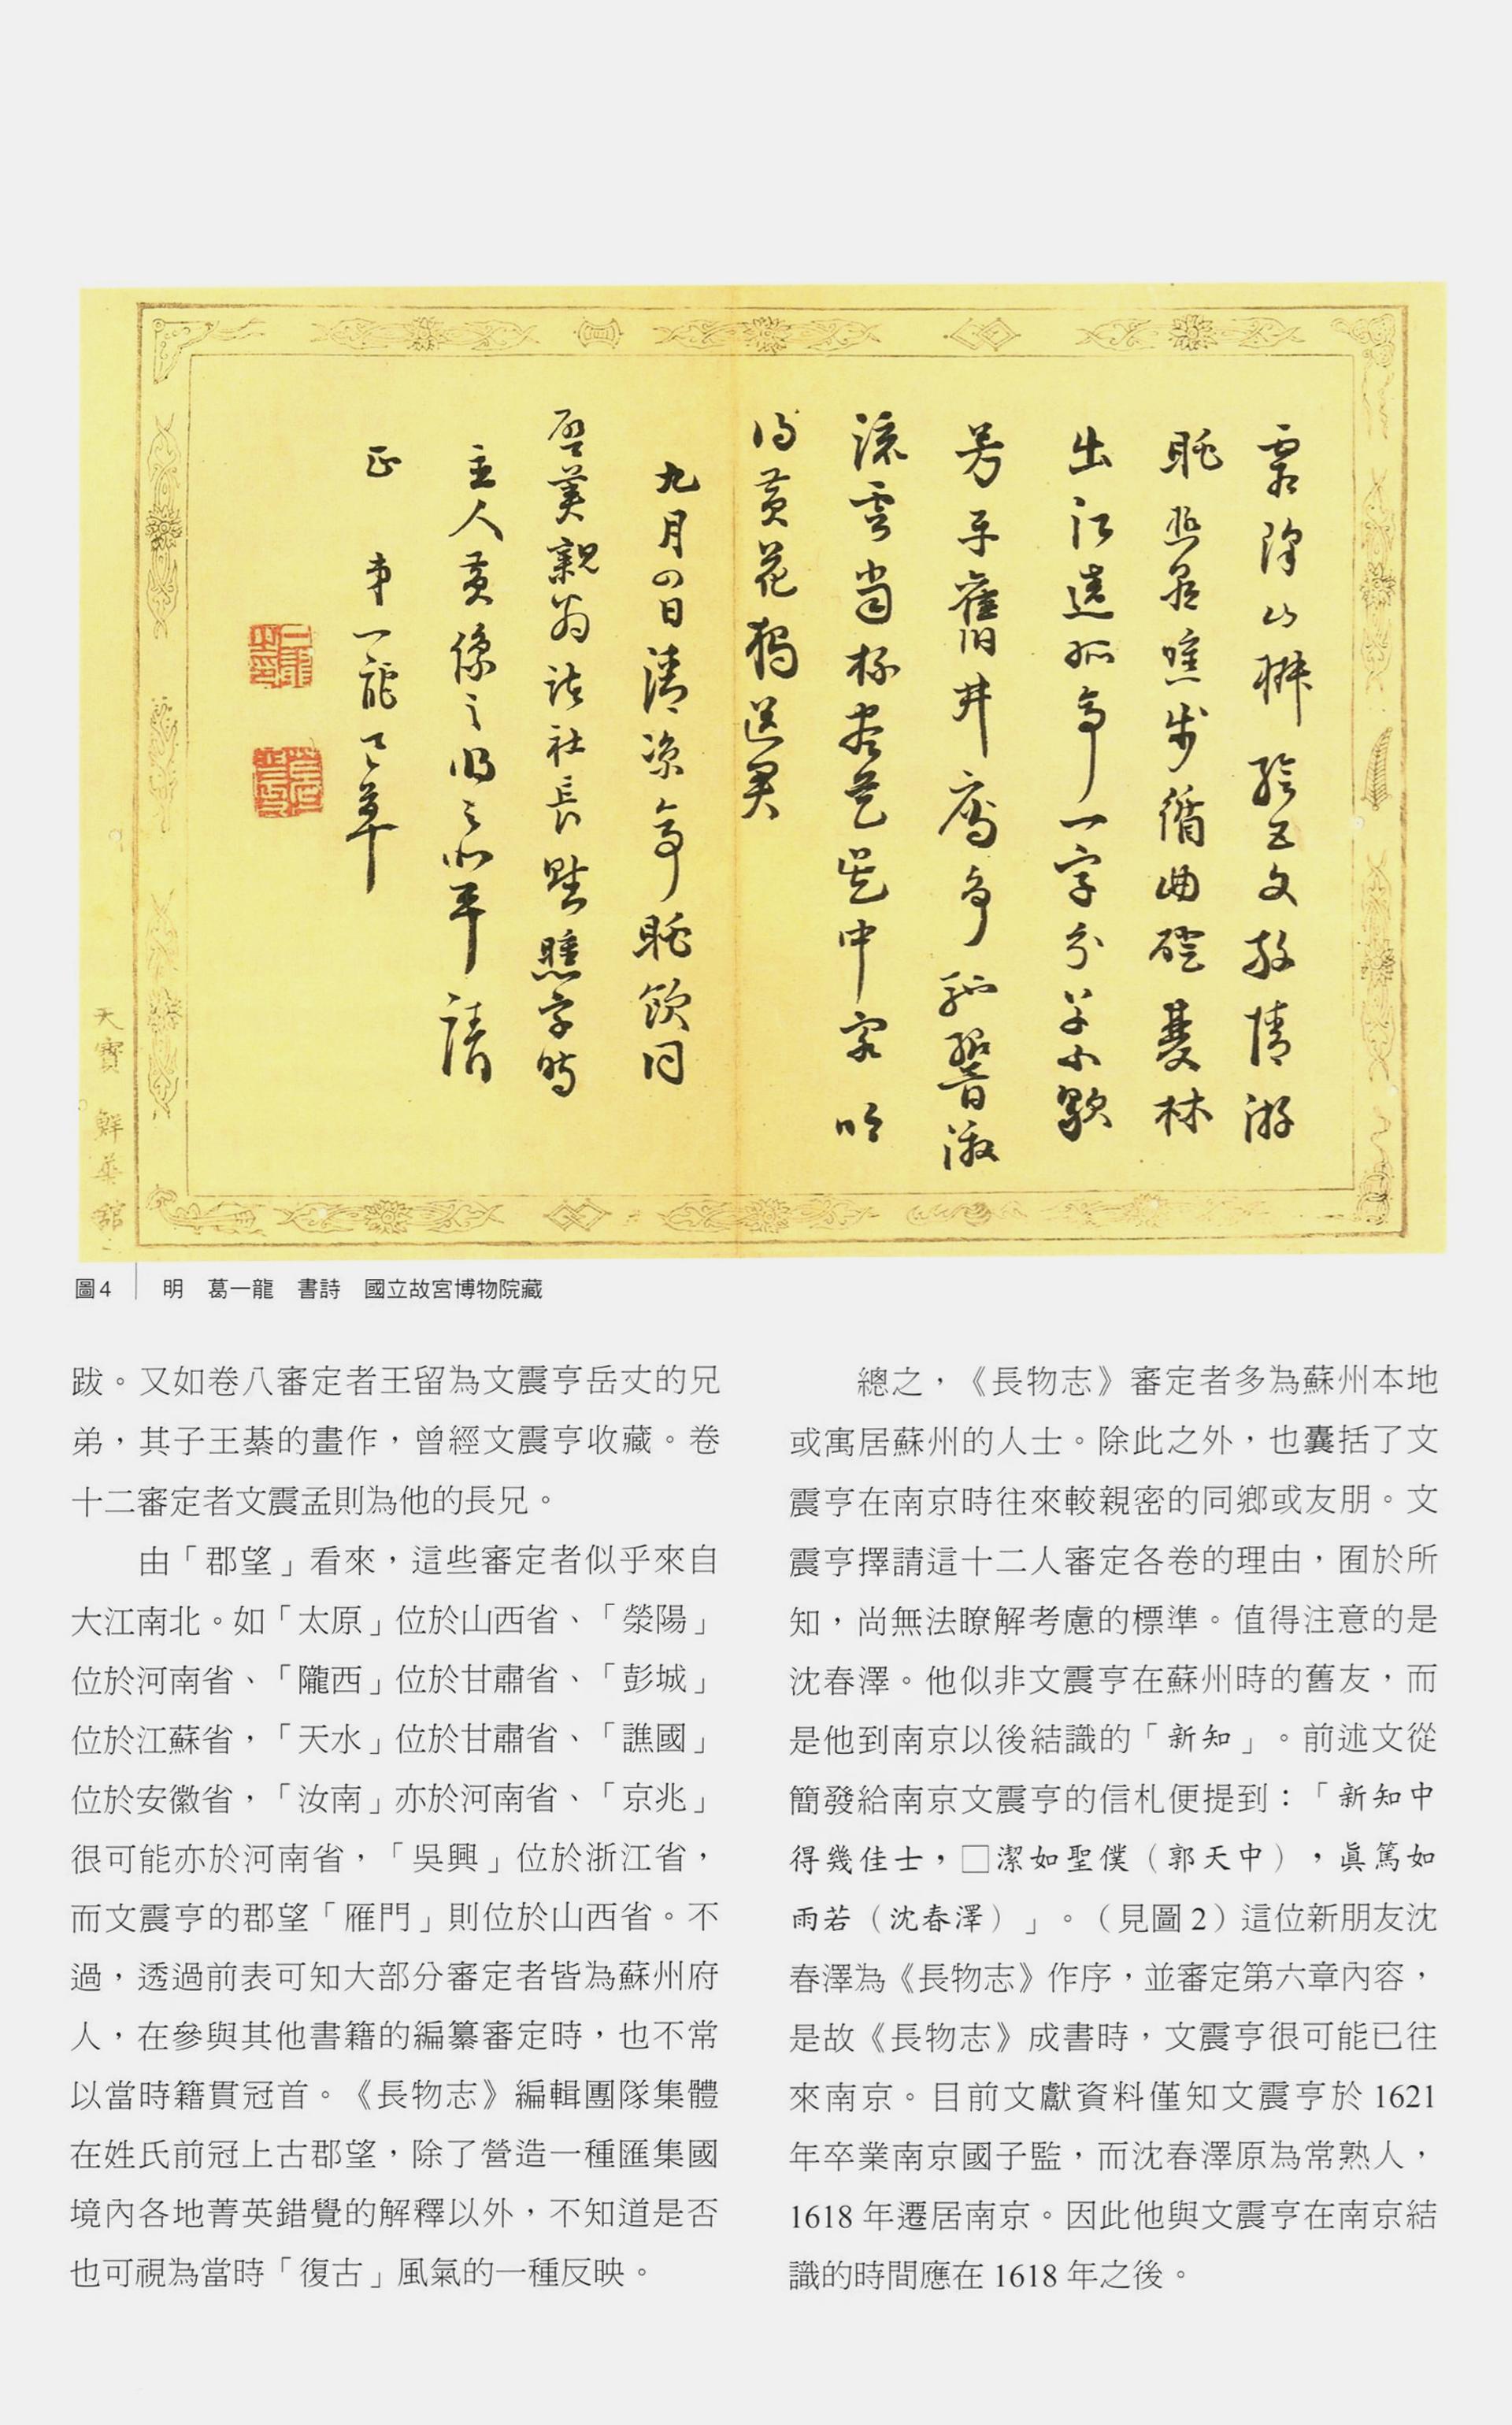 霜降山五文情游
眺步循曲磴林
出江遠孤亭一字分草小歇
芳平舊井孤響激
流雲當杯中客吟
得黃花獨送君
九月四日清涼亭眺飲同
啓美親翁社長字時
主人黃之之平請
正 弟一龍草
天寶 鮮華館
圖4 明 葛一龍 書詩 國立故宮博物院藏
跋。又如卷八審定者王留為文震亨岳丈的兄
弟，其子王綦的畫作，曾經文震亨收藏。卷
十二審定者文震孟則為他的長兄。
由「郡望」看來，這些審定者似乎來自
大江南北。如「太原」位於山西省、「滎陽」
位於河南省、「隴西」位於甘肅省、「彭城」
位於江蘇省，「天水」位於甘肅省、「譙國」
位於安徽省，「汝南」亦於河南省、「京兆」
很可能亦於河南省，「吳興」位於浙江省，
而文震亨的郡望「雁門」則位於山西省。不
過，透過前表可知大部分審定者皆為蘇州府
人，在參與其他書籍的編纂審定時，也不常
以當時籍貫冠首。《長物志》編輯團隊集體
在姓氏前冠上古郡望，除了營造一種匯集國
境內各地菁英錯覺的解釋以外，不知道是否
也可視為當時「復古」風氣的一種反映。
總之，《長物志》審定者多為蘇州本地
或寓居蘇州的人士。除此之外，也囊括了文
震亨在南京時往來較親密的同鄉或友朋。文
震亨擇請這十二人審定各卷的理由，囿於所
知，尚無法瞭解考慮的標準。值得注意的是
沈春澤。他似非文震亨在蘇州時的舊友，而
是他到南京以後結識的「新知」。前述文從
簡發給南京文震亨的信札便提到：「新知中
得幾佳士，□潔如聖僕（郭天中），眞篤如
雨若（沈春澤）」。（見圖2）這位新朋友沈
春澤為《長物志》作序，並審定第六章內容，
是故《長物志》成書時，文震亨很可能已往
來南京。目前文獻資料僅知文震亨於1621
年卒業南京國子監，而沈春澤原為常熟人，
1618年遷居南京。因此他與文震亨在南京結
識的時間應在1618年之後。